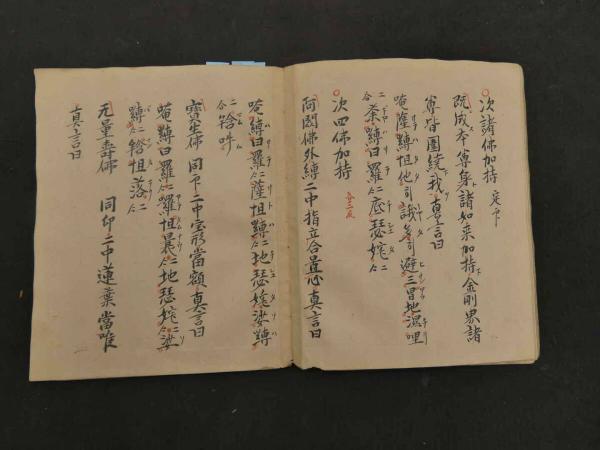 次諸佛加持 定印
既成本尊身諸如来加持金剛界諸
尊皆圍繞我真言曰
唵薩嚩怛他誐多避三冒地涅哩
茶嚩曰羅二合底瑟婉二合
次四佛加持 各三反
阿閦佛外縛二中指立合置心真言曰
唵嚩曰羅二合薩怛嚩二合地瑟婉娑嚩
二合𤚥吽
寶生佛 同印二中宝形當額真言曰
唵嚩曰羅二合羅怛曩二合地瑟婉二合娑
嚩二合𤚥怛落二合
无量壽佛 同印二中蓮葉當喉
真言曰